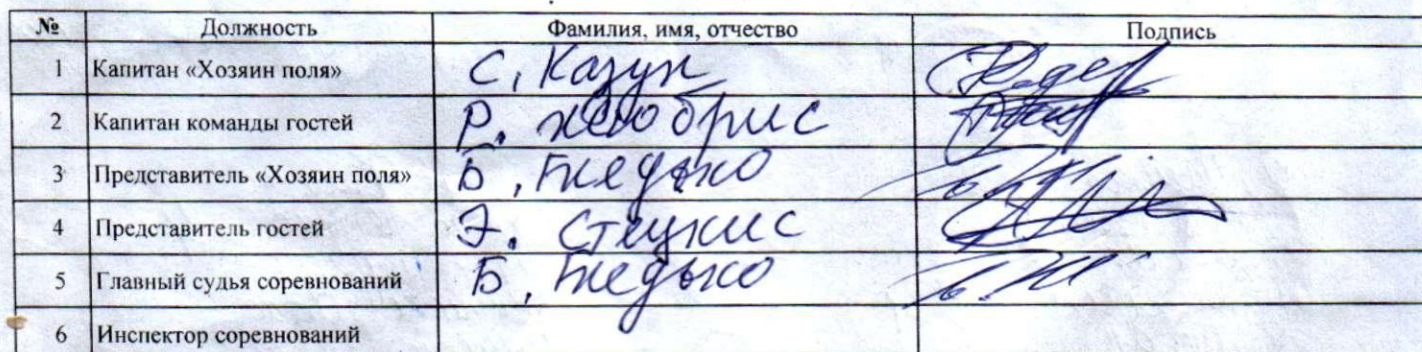 № Должность Фамилия, имя, отчество Подпись
1 Капитан «Хозяин поля» С. Казук
2 Капитан команды гостей Р.
3 Представитель «Хозяин поля» Б.
4 Представитель гостей Э.
5 Главный судья соревнований Б.
6 Инспектор соревнований